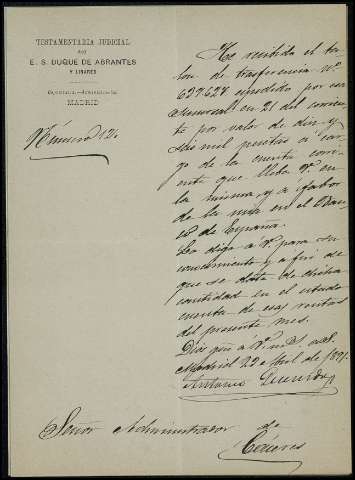 TESTAMENTARÍA JUDICIAL
DEL
E. S. DUQUE DE ABRANTES
Y LINARES
MADRID
Número 12.
He recibido el ta-
lon de trasferencia nº
627.627 espedido por esa
Sucursal en 21 del corrien-
te por valor de diez y
seis mil pesetas á car-
go de la cuenta corri-
ente que lleba V. en
la misma, y á fabor
de la mia en el Ban-
co de España.
Lo digo a V. para su
conocimiento y a fin de
que se data de dicha
cantidad en el estado
cuenta de esas rentas
del presente mes.
Dios gue á V. m. a.
Madrid 22 Abril de 1891.
Antonio
Señor Administrador de
Cáceres